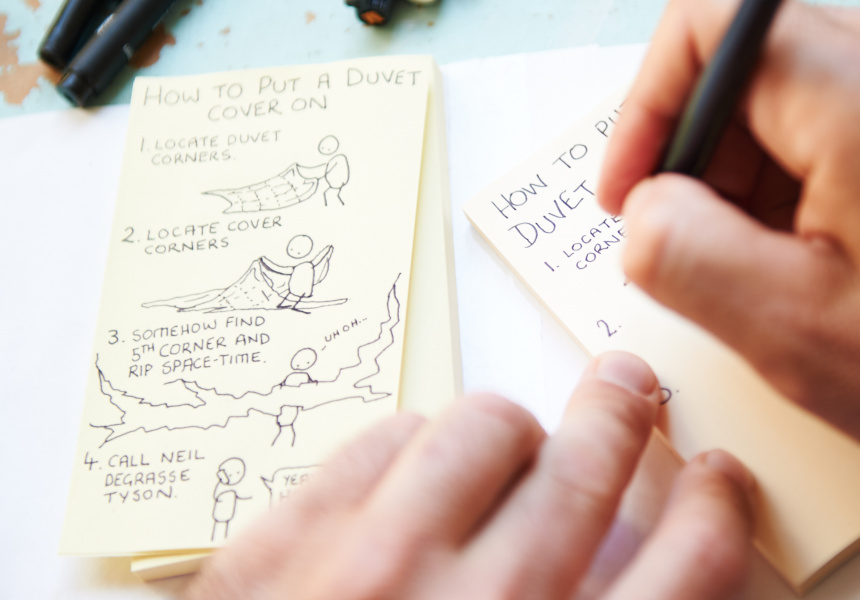 HOW TO PUT A DUVET
COVER ON
1. LOCATE DUVET
CORNERS.
2. LOCATE COVER
CORNERS
3. SOMEHOW FIND
5TH CORNER AND
RIP SPACE-TIME.
-UH OH...
4. CALL NEIL
DEGRASSE
TYSON.
HOW TO
DUVET
1. LOCATE
2.